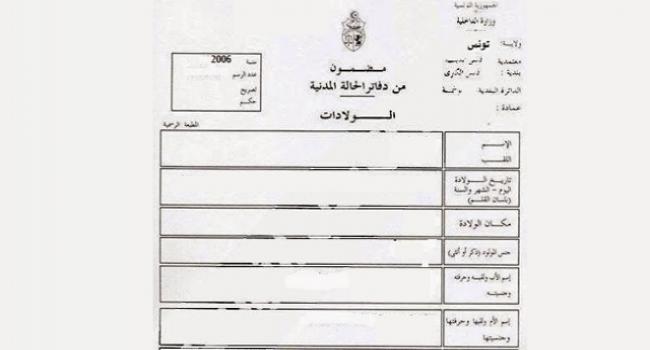 الجمهورية التونسية
وزارة الداخلية
ولاية: تونس
معتمدية
بلدية :
الدائرة البلدية
عمادة :
مضمون
من دفاتر الحالة المدنية
الــولادات
سنة 2006
عدد الرسم
تصريح
حكم
الطبعة الرسمية
الإسم
اللقب
تاريخ الولادة
اليوم - الشهر والسنة
(بلسان القلم)
مكان الولادة
جنس المولود (ذكر أو أنثى)
إسم الأب ولقبه وحرفته
وجنسيته
إسم الأم ولقبها وحرفتها
وجنسيتها